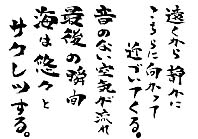 遠くから静かに
こちらに向かって
近づいてくる。
音のない空気が流れ
最後の瞬向
海は悠々と
サクレツする。